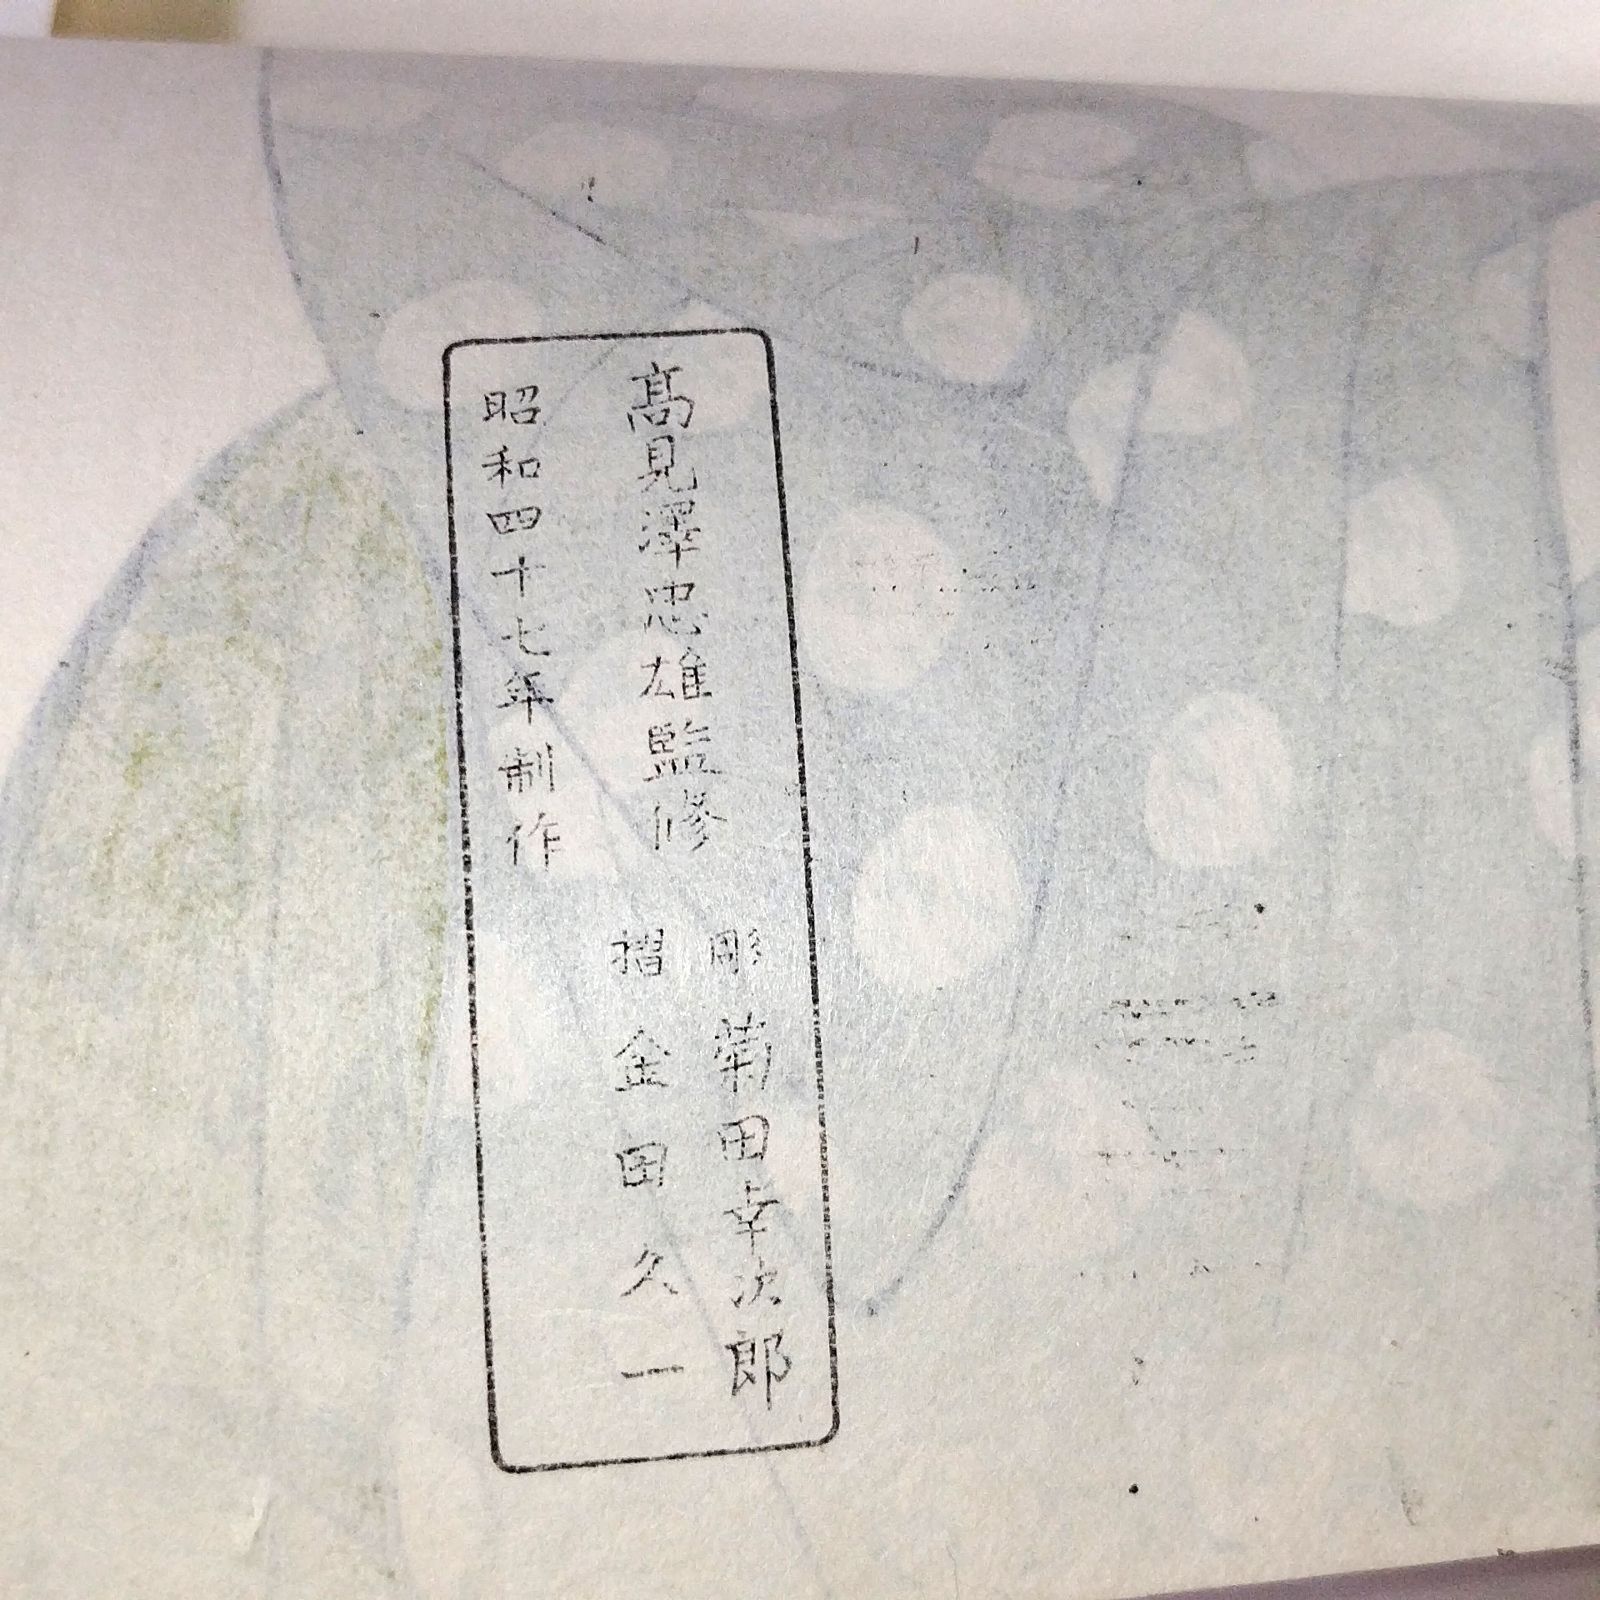 髙見澤忠雄監修
彫 菊田幸次郎
摺 金田久一
昭和四十七年制作